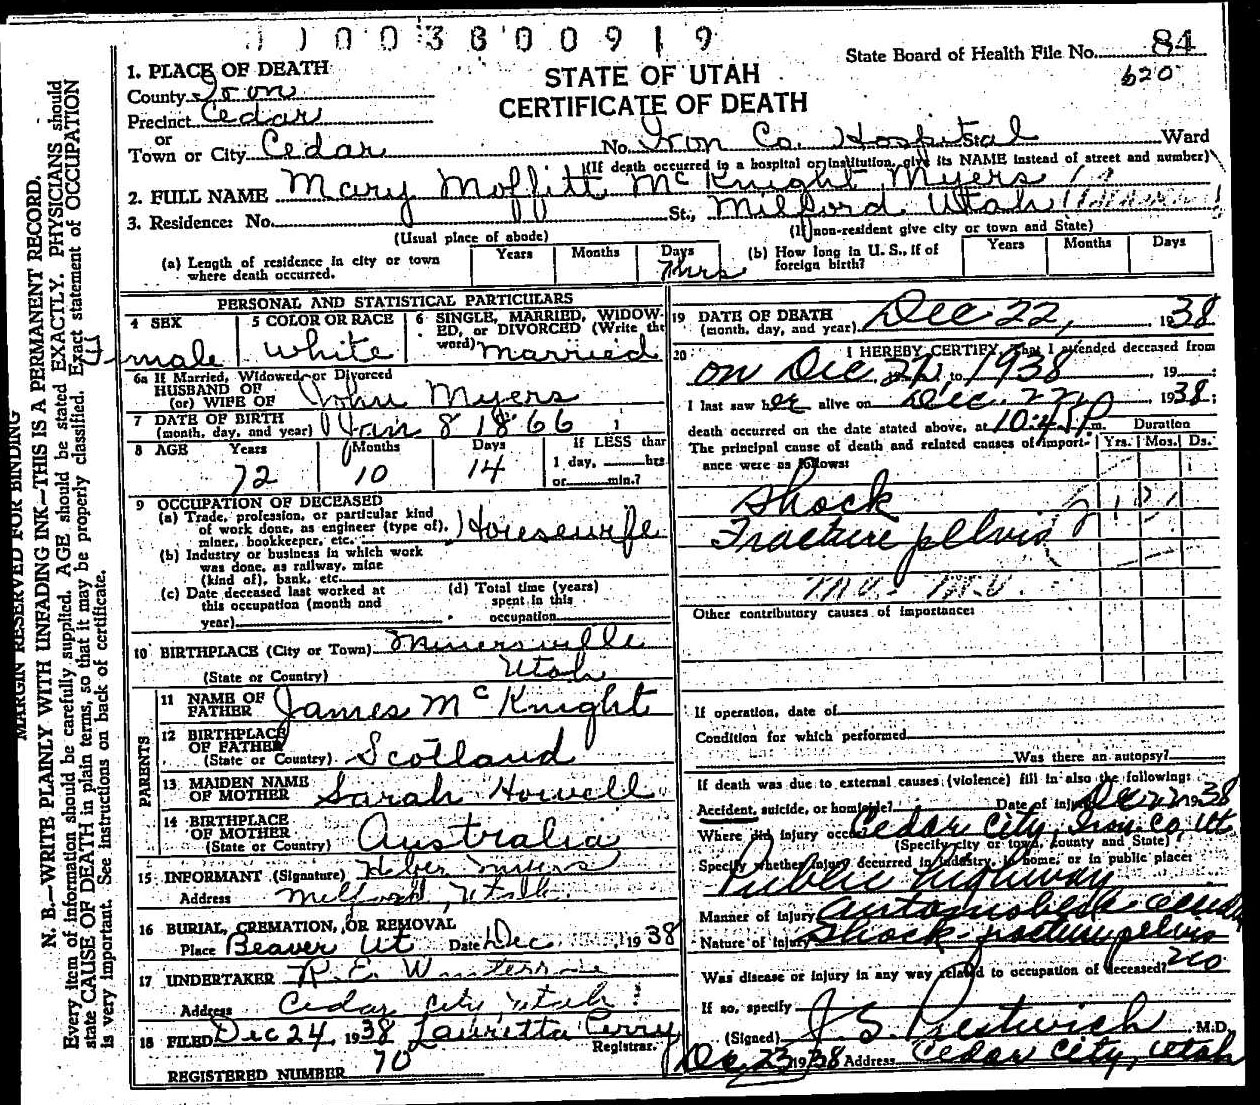 003800919
State Board of Health File No. 84
620
STATE OF UTAH
CERTIFICATE OF DEATH
1. PLACE OF DEATH
County Iron
Precinct Cedar
or
Town or City Cedar No. Iron Co. Hospital St. Ward
(If death occurred in a hospital or institution, give its NAME instead of street and number)
2. FULL NAME Mary Moffitt McKnight Myers
3. Residence: No. St., Milford Utah
(Usual place of abode) (If non-resident give city or town and State)
(a) Length of residence in city or town where death occurred. Years Months Days 7 hrs
(b) How long in U. S., if of foreign birth? Years Months Days
PERSONAL AND STATISTICAL PARTICULARS
4 SEX Female
5 COLOR OR RACE White
6 SINGLE, MARRIED, WIDOWED, or DIVORCED (Write the word) Married
6a If Married, Widowed or Divorced
HUSBAND OF
(or) WIFE OF John Myers
7 DATE OF BIRTH
(month, day, and year) Jan 8 1866
8 AGE Years Months Days If LESS than
72 10 14 1 day, hrs
or min.?
9 OCCUPATION OF DECEASED
(a) Trade, profession, or particular kind
of work done, as engineer (type of),
miner, bookkeeper, etc. Housewife
(b) Industry or business in which work
was done, as railway, mine
(kind of), bank, etc.
(c) Date deceased last worked at
this occupation (month and
year)
(d) Total time (years)
spent in this
occupation
10 BIRTHPLACE (City or Town) Minersville
(State or Country) Utah
PARENTS
11 NAME OF
FATHER James McKnight
12 BIRTHPLACE
OF FATHER
(State or Country) Scotland
13 MAIDEN NAME
OF MOTHER Sarah Howell
14 BIRTHPLACE
OF MOTHER
(State or Country) Australia
15 INFORMANT (Signature) Heber Myers
Address Milford, Utah
16 BURIAL, CREMATION, OR REMOVAL
Place Beaver Ut Date Dec 1938
17 UNDERTAKER R. E.
Address Cedar City Utah
18 FILED Dec 24, 1938 Lauretta Perry
Registrar.
REGISTERED NUMBER 70
19 DATE OF DEATH
(month, day, and year) Dec 22, 1938
20 I HEREBY CERTIFY, That I attended deceased from
on Dec 22, to 1938, 19 ;
I last saw her alive on Dec. 22 1938;
death occurred on the date stated above, at 10:45 P m.
The principal cause of death and related causes of import-
ance were as follows:
Duration
Yrs. Mos. Ds.
Shock
Fracture pelvis
M.V. M.V.
Other contributory causes of importance:
If operation, date of
Condition for which performed
Was there an autopsy?
If death was due to external causes (violence) fill in also the following:
Accident, suicide, or homicide? Date of injury Dec 22 1938
Where did injury occur? Cedar City, Iron Co, Ut
(Specify city or town, county and State)
Specify whether injury occurred in industry, in home, or in public place:
Public highway
Manner of injury automobile accident
Nature of Injury Shock fracture pelvis
Was disease or injury in any way related to occupation of deceased? no
If so, specify
(Signed) J. S. Prestwich M.D.
Dec 23 1938 Address Cedar City, Utah
MARGIN RESERVED FOR BINDING
N. B.—WRITE PLAINLY WITH UNFADING INK—THIS IS A PERMANENT RECORD.
Every item of information should be carefully supplied. AGE should be stated EXACTLY. PHYSICIANS should
state CAUSE OF DEATH in plain terms, so that it may be properly classified. Exact statement of OCCUPATION
is very important. See instructions on back of certificate.